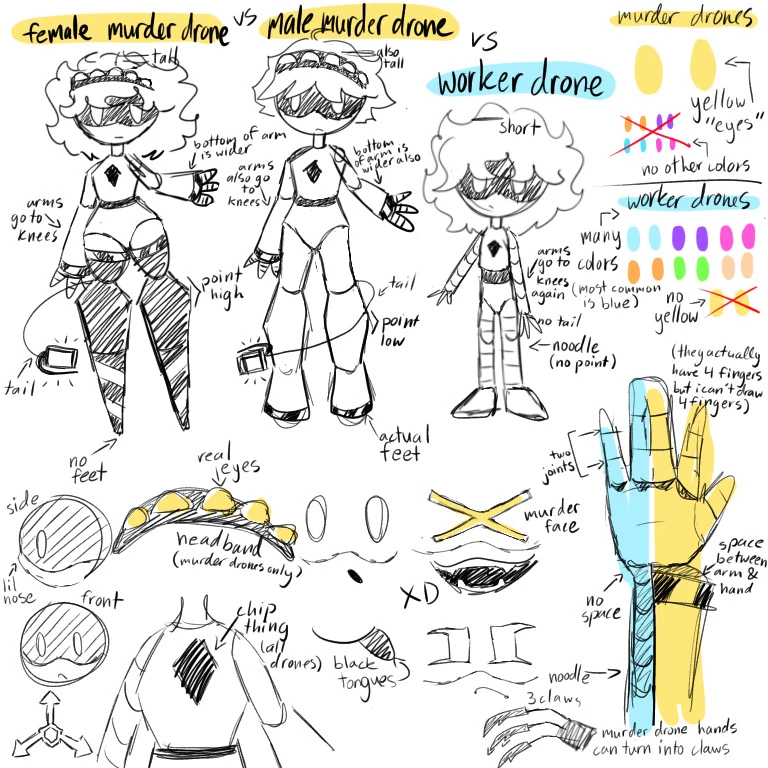 female murder drone
vs
male murder drone
vs
worker drone
murder drones
tall
also
tall
short
yellow
"eyes"
no other colors
worker drones
many
colors
(most common
is blue)
no
yellow
bottom of arm
is wider
arms
go to
knees
point
high
tail
no
feet
bottom
of arm is
wider also
arms
also go
to
knees
tail
point
low
actual
feet
arms
go to
knees
again
no tail
noodle
(no point)
(they actually
have 4 fingers
but i can't draw
4 fingers)
two
joints
space
between
arm &
hand
no
space
noodle
murder drone hands
can turn into claws
3 claws
side
lil
nose
front
real
eyes
headband
(murder drones only)
chip
thing
(all
drones)
black
tongues
murder
face
XD